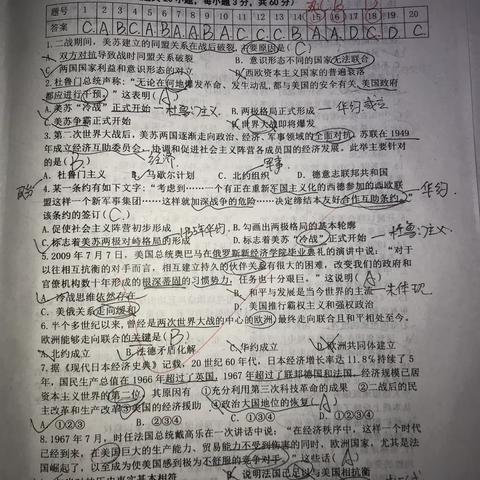 小题，每小题3分，共60分）
题号 1 2 3 4 5 6 7 8 9 10 11 12 13 14 15 16 17 18 19 20
答案
1.二战期间，美苏建立的同盟关系在战后破裂，主要原因是（C）
A.双方对抗导致战时同盟关系破裂 B.意识形态不同的国家无法联合
C.两国国家利益和意识形态的对立 D.西欧资本主义国家的普遍衰落
2.杜鲁门总统声称：“无论在何地爆发革命、发生动乱，都与美国的安全有关，美国政府
都应进行干预。”这表明（A）
A.美苏“冷战”正式开始 B.两极格局正式形成
C.美苏争霸正式开始 D.世界大战即将爆发
3.第二次世界大战后，美苏两国逐渐走向政治、经济、军事领域的全面对抗，苏联在1949
年成立经济互助委员会，协调和促进社会主义阵营各成员国的经济发展。此举主要针对
的是（B）
A.杜鲁门主义 B.马歇尔计划 C.北约组织 D.德意志联邦共和国
4.某条约有如下文字：“考虑到……一个有正在重新军国主义化的西德参加的西欧联
盟这样一个新军事集团……这样就加深战争的危险……决定缔结本友好合作互助条约。”
该条约的签订（C）
A.促使社会主义阵营初步形成 B.勾画出两极格局的基本轮廓
C.标志着美苏两极对峙格局的形成 D.标志着美苏“冷战”正式开始
5.2009年7月7日，美国总统奥巴马在俄罗斯新经济学院毕业典礼的演讲中说：“对于
以往相互抗衡的对手而言，相互建立持久的伙伴关系有很大的困难，改变我们的政府和
官僚机构数十年形成的根深蒂固的习惯势力，任务也十分艰巨。”这说明（A）
A.冷战思维依然存在 B.和平与发展是当今世界的主流
C.美俄关系走向缓和 D.美国推行霸权主义和强权政治
6.半个多世纪以来，曾经是两次世界大战的中心的欧洲，最终走向联合且和平相处至今。
欧洲能够走向联合的关键是（B）
A.北约成立 B.法德矛盾化解 C.华约成立 D.欧洲共同体建立
7.据《现代日本经济史典》记载，20世纪60年代，日本经济增长率达11.8%持续了5
年，国民生产总值在1966年超过了英国，1967年超过了联邦德国和法国，经济规模已居
资本主义世界的第二位。其原因有 ①充分利用第三次科技革命的成果 ②二战后的民
主改革和生产改革 ③美国的经济援助 ④政治大国地位的恢复（A）
A.①②③ B.①③④ C.①②④ D.①②③④
8.1967年7月，时任法国总统戴高乐在一次讲话中说：“在经济秩序中，这样一个时代
已经到来，在美国巨大的生产能力、贸易能力不受到伤害的同时，欧洲国家，尤其是法
国崛起了，以至成为使美国感到极为不舒服的竞争对手。”这些话（A）
D.说明法国已足以与美国相抗衡